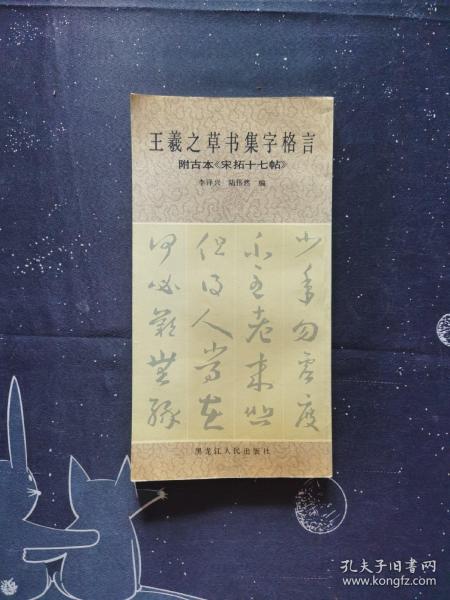 王羲之草书集字格言
附古本《宋拓十七帖》
李祥兴 陆伟然 编
少年勿虚度
不至老来悲
但得人常在
何必叹无缘
黑龙江人民出版社
孔夫子旧书网
www.kongfz.com